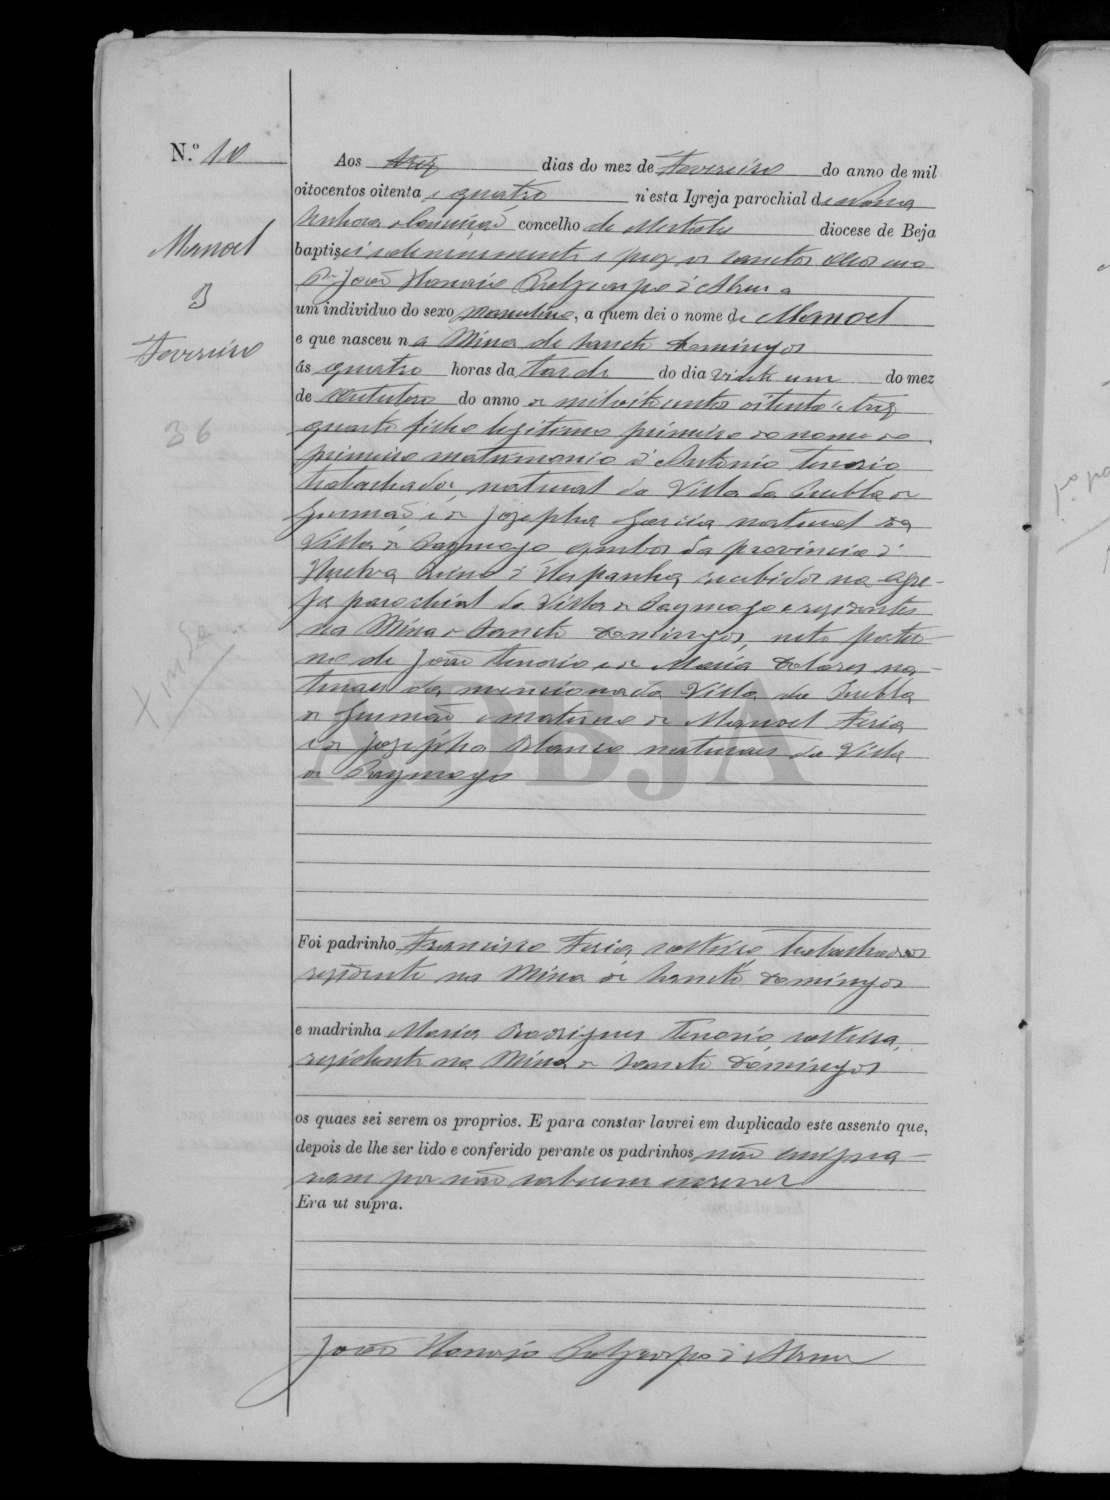 N.º 10
Aos trez dias do mez de Fevereiro do anno de mil
oitocentos oitenta e quatro n'esta Igreja parochial de Nossa
Senhora concelho de Mertola diocese de Beja
baptisei solemnemente e puz os sanctos oleos eu o
P.e João Honorio d'Abreu a
um individuo do sexo masculino, a quem dei o nome de Manoel
e que nasceu na Mina de Sancto Domingos
ás quatro horas da tarde do dia vinte um do mez
de Outubro do anno de mil oitocentos oitenta e trez
quarto filho legitimo primeiro do nome do
primeiro matrimonio d'Antonio Tenorio
trabalhador, natural da Villa da Puebla de
Gusmão e de Josepha Garcia natural da
Villa de Paymogo ambos da provincia d'
Huelva Reino d'Hespanha, recebidos na egre-
ja parochial da Villa de Paymogo e residentes
na Mina de Sancto Domingos, neto pater-
no de João Tenorio e de Maria Dolores na-
turaes da mencionada Villa da Puebla
de Gusmão e materno de Manoel Feria
e de Josepha Blanco naturaes da Villa
de Paymogo
Foi padrinho Francisco Feria, solteiro, trabalhador
residente na Mina de Sancto Domingos
e madrinha Maria Rodrigues Tenorio, solteira,
residente na Mina de Sancto Domingos
os quaes sei serem os proprios. E para constar lavrei em duplicado este assento que,
depois de lhe ser lido e conferido perante os padrinhos não assigna-
ram por não saberem escrever
Era ut supra.
João Honorio d'Abreu
Manoel
3
Fevereiro
36
ADBJA